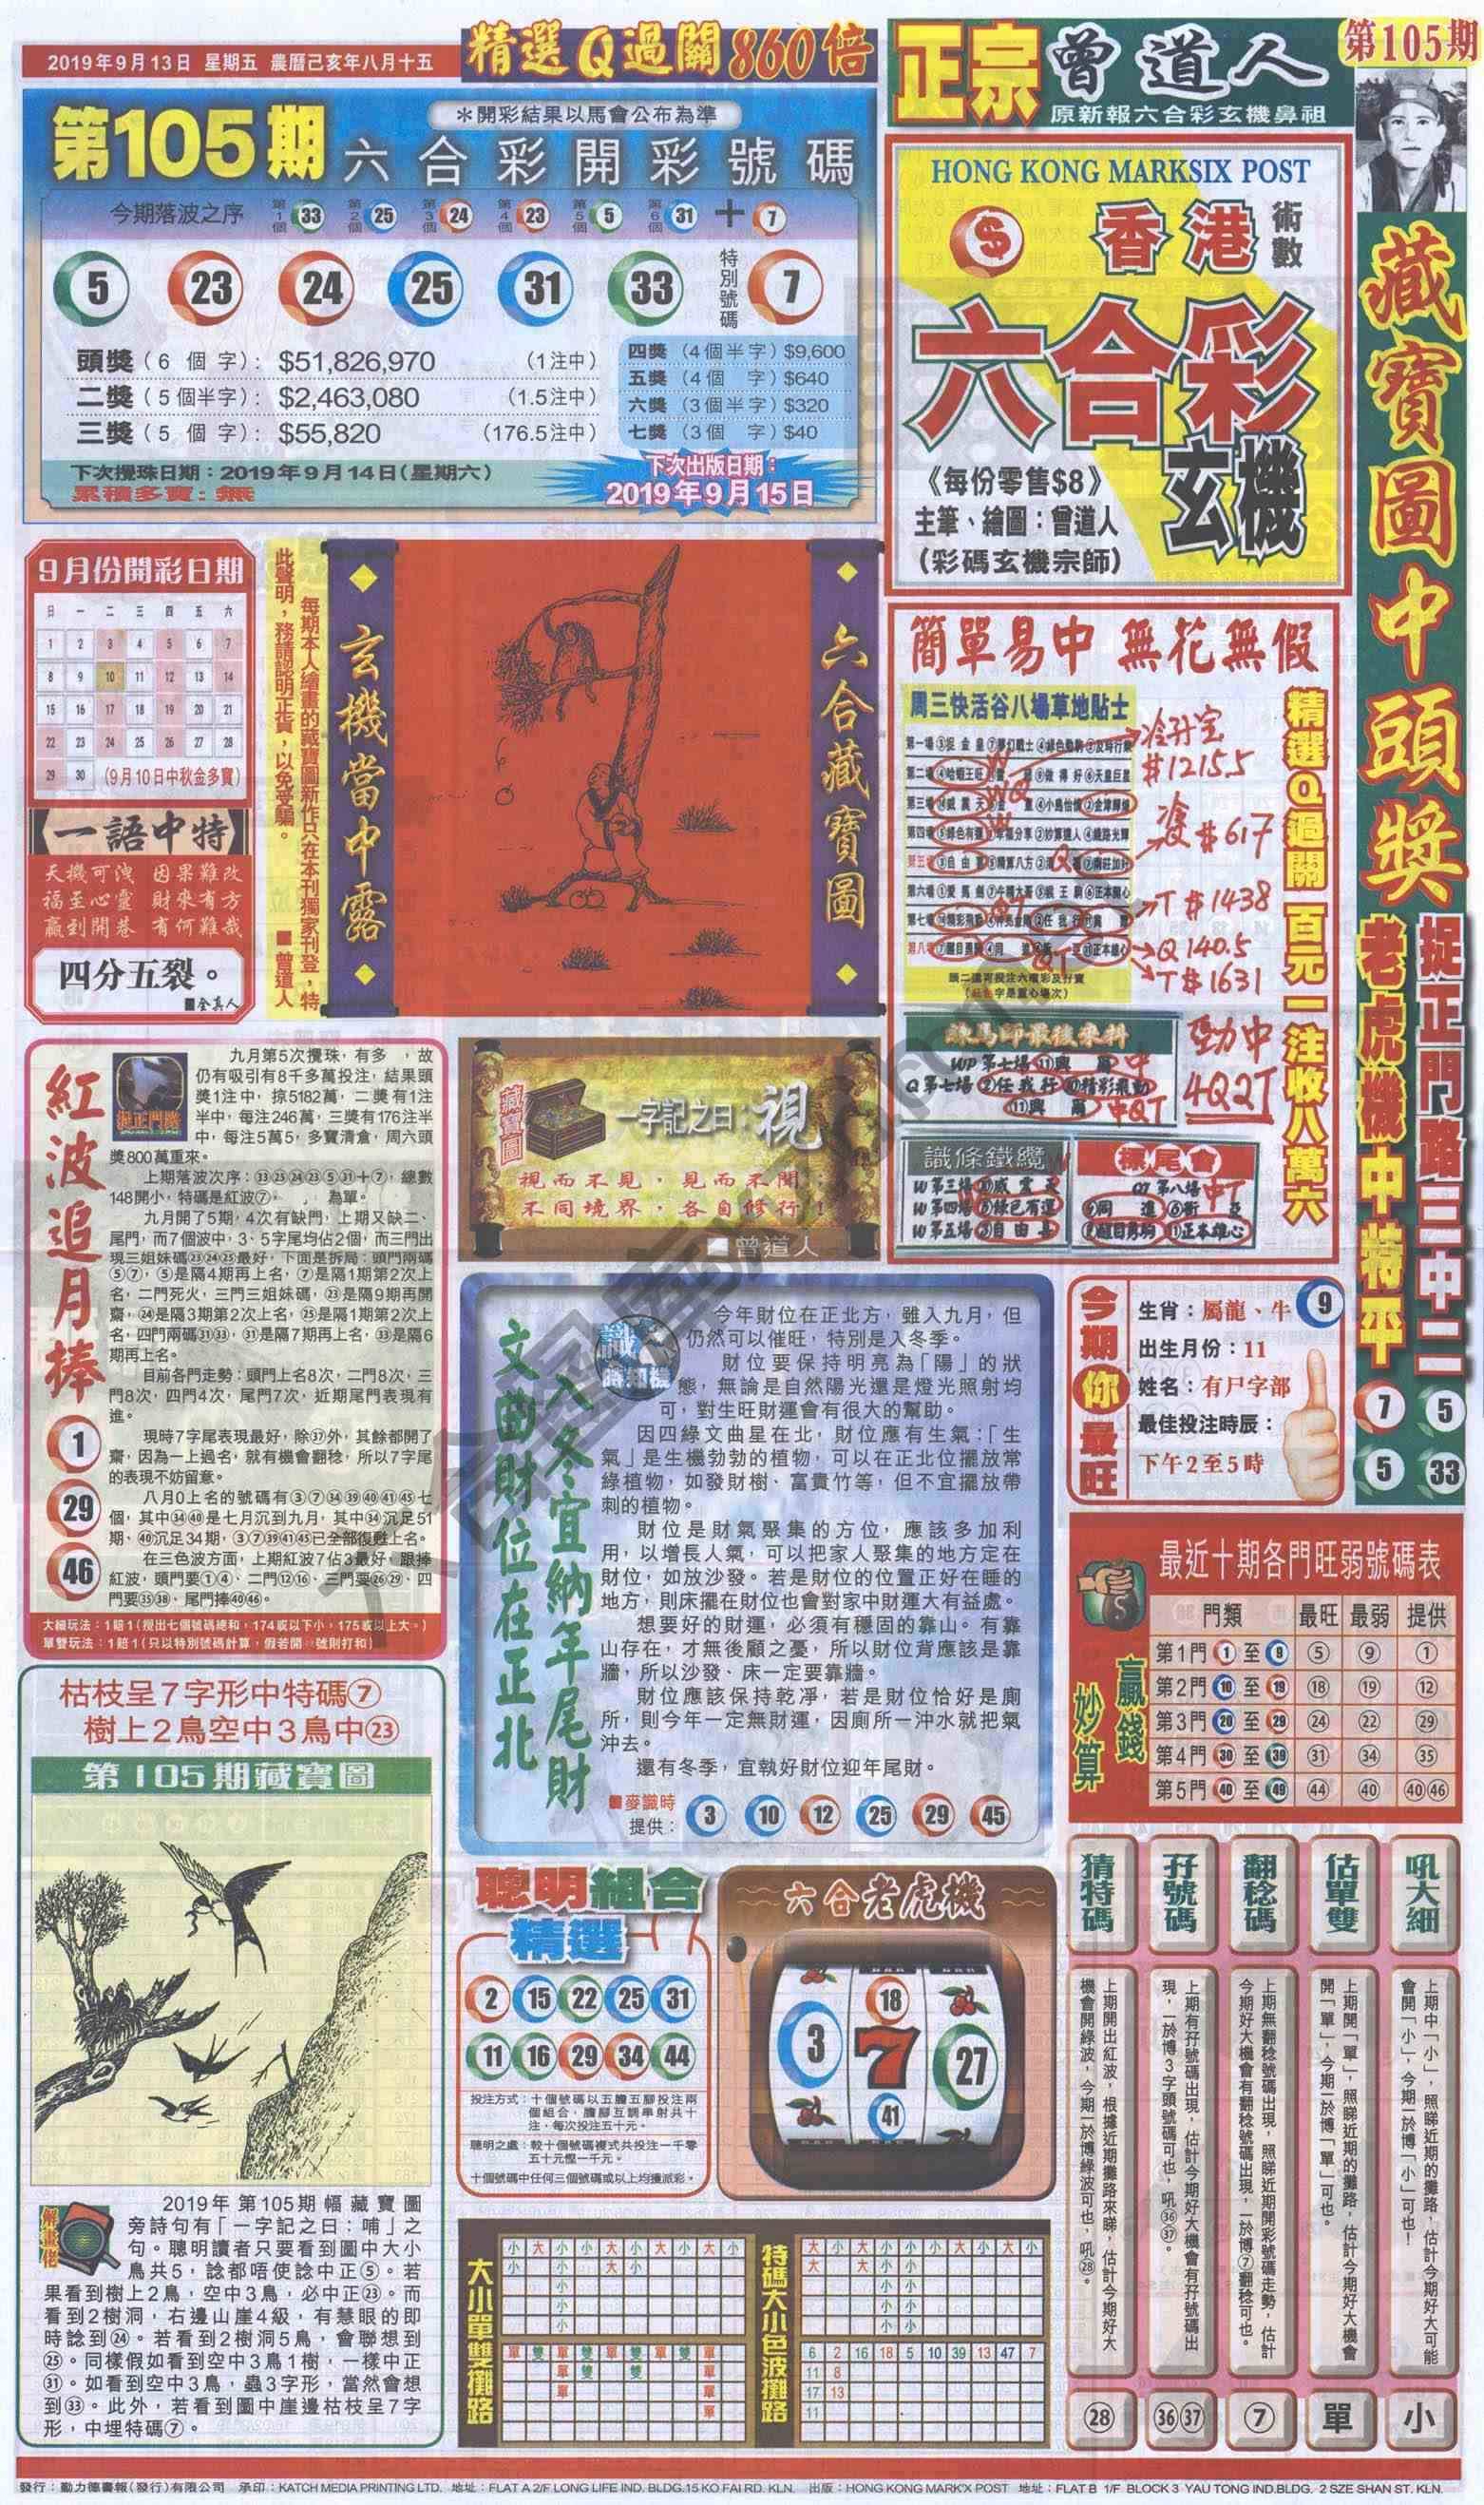 2019年9月13日 星期五 農曆己亥年八月十五
精選Q過關860倍
第105期
＊開彩結果以馬會公布為準
六合彩開彩號碼
今期落波之序 第1個 33 第2個 25 第3個 24 第4個 23 第5個 5 第6個 31 + 7
5 23 24 25 31 33 特別號碼 7
頭獎(6 個 字): $51,826,970 (1注中)
二獎(5個半字): $2,463,080 (1.5注中)
三獎(5 個 字): $55,820 (176.5注中)
四獎 (4個半字) $9,600
五獎 (4個 字) $640
六獎 (3個半字) $320
七獎 (3個 字) $40
下次攪珠日期：2019年9月14日(星期六)
累積多寶：無
下次出版日期：
2019年9月15日
正宗曾道人
原新報六合彩玄機鼻祖
第105期
HONG KONG MARKSIX POST
香港
術數
六合彩
玄機
《每份零售$8》
主筆、繪圖：曾道人
(彩碼玄機宗師)
藏寶圖中頭獎
捉正門路三中二
老虎機中特平
7 5
5 33
9月份開彩日期
日 一 二 三 四 五 六
1 2 3 4 5 6 7
8 9 10 11 12 13 14
15 16 17 18 19 20 21
22 23 24 25 26 27 28
29 30 (9月10日中秋金多寶)
一語中特
天機可洩 因果難改
福至心靈 財來有方
贏到開巷 有何難哉
四分五裂。
■全真人
每期本人繪畫的藏寶圖新作只在本刊獨家刊登，特
此聲明，務請認明正貨，以免受騙。 ■曾道人
玄機當中露
六合藏寶圖
簡單易中 無花無假
周三快活谷八場草地貼士
#12155
#617
T #1438
Q 140.5
T $1631
勁中
4Q2T
精選Q過關 百元一注收八萬六
識條鐵纜
紅波追月捧
捉正門路
九月第5次攪珠，有多 ，故
仍有吸引有8千多萬投注，結果頭
獎1注中，掠5182萬，二獎有1注
半中，每注246萬，三獎有176注半
中，每注5萬5，多寶清倉，周六頭
獎800萬重來。
上期落波次序：㉝㉕㉔㉓⑤㉛＋⑦，總數
148開小，特碼是紅波⑦， 為單。
九月開了5期，4次有缺門，上期又缺二、
尾門，而7個波中，3、5字尾均佔2個，而三門出
現三姐妹碼㉓㉔㉕最好，下面是拆局：頭門兩碼
⑤⑦，⑤是隔4期再上名，⑦是隔1期第2次上
名，二門死火，三門三姐妹碼，㉓是隔9期再開
齋，㉔是隔3期第2次上名，㉕是隔1期第2次上
名，四門兩碼㉛㉝，㉛是隔7期再上名，㉝是隔6
期再上名。
目前各門走勢：頭門上名8次，二門8次，三
門8次，四門4次，尾門7次，近期尾門表現有
進。
現時7字尾表現最好，除㊲外，其餘都開了
齋，因為一上過名，就有機會翻稔，所以7字尾
的表現不妨留意。
八月0上名的號碼有③⑦㉞㊴㊵㊶㊺七
個，其中㉞㊵是七月沉到九月，其中㉞沉足51
期、㊵沉足34期，③⑦㊴㊶㊺已全部復甦上名。
在三色波方面，上期紅波7佔3最好，跟捧
紅波，頭門要①④、二門⑫⑯、三門要㉖㉙、四
門要㉟㊳、尾門捧㊵㊻。
1
29
46
大細玩法：1賠1(攪出七個號碼總和，174或以下小，175或以上大。)
單雙玩法：1賠1(只以特別號碼計算，假若開 號則打和)
藏寶圖
一字記之曰：視
視而不見，見而不聞
不同境界，各自修行！
曾道人
文曲財位在正北
入冬宜納年尾財
今年財位在正北方，雖入九月，但
仍然可以催旺，特別是入冬季。
財位要保持明亮為「陽」的狀
態，無論是自然陽光還是燈光照射均
可，對生旺財運會有很大的幫助。
因四綠文曲星在北，財位應有生氣：「生
氣」是生機勃勃的植物，可以在正北位擺放常
綠植物，如發財樹、富貴竹等，但不宜擺放帶
刺的植物。
財位是財氣聚集的方位，應該多加利
用，以增長人氣，可以把家人聚集的地方定在
財位，如放沙發。若是財位的位置正好在睡的
地方，則床擺在財位也會對家中財運大有益處。
想要好的財運，必須有穩固的靠山。有靠
山存在，才無後顧之憂，所以財位背應該是靠
牆，所以沙發、床一定要靠牆。
財位應該保持乾淨，若是財位恰好是廁
所，則今年一定無財運，因廁所一沖水就把氣
沖去。
還有冬季，宜執好財位迎年尾財。
■麥識時
提供： 3 10 12 25 29 45
今期你最旺
生肖：屬龍、牛 9
出生月份：11
姓名：有尸字部
最佳投注時辰：
下午2至5時
最近十期各門旺弱號碼表
贏錢妙算
門類 最旺 最弱 提供
第1門 1至9 ⑤ ⑨ ①
第2門 10至19 ⑱ ⑲ ⑫
第3門 20至29 ㉔ ㉒ ㉙
第4門 30至39 ㉛ ㉞ ㉟
第5門 40至49 ㊹ ㊵ ㊵㊻
枯枝呈7字形中特碼⑦
樹上2鳥空中3鳥中㉓
第105期藏寶圖
解畫佬
2019年第105期幅藏寶圖
旁詩句有「一字記之曰：哺」之
句。聰明讀者只要看到圖中大小
鳥共5，諗都唔使諗中正⑤。若
果看到樹上2鳥，空中3鳥，必中正㉓。而
看到2樹洞，右邊山崖4級，有慧眼的即
時諗到㉔。若看到2樹洞5鳥，會聯想到
㉕。同樣假如看到空中3鳥1樹，一樣中正
㉛。如看到空中3鳥，蟲3字形，當然會想
到㉝。此外，若看到圖中崖邊枯枝呈7字
形，中埋特碼⑦。
聰明組合
精選
2 15 22 25 31
11 16 29 34 44
投注方式：十個號碼以五膽五腳投注兩
個組合，膽腳互調串射共十
注，每次投注五十元。
聰明之處：較十個號碼複式共投注一千零
五十元慳一千元。
十個號碼中任何三個號碼或以上均獲派彩。
六合老虎機
3 18 7 41 27
大小單雙攤路
特碼大小色波攤路
6 2 16 18 5 10 39 13 47 7
11 8
17 13
11
吼大細
上期中「小」，照睇近期的攤路，估計今期好大可能
會開「小」，今期一於博「小」可也！
小
估單雙
上期開「單」，照睇近期的攤路，估計今期好大機會
開「單」，今期一於博「單」可也。
單
翻稔碼
上期無翻稔號碼出現，照睇近期開彩號碼走勢，估計
今期好大機會有翻稔號碼出現，一於博⑦翻稔可也。
⑦
孖號碼
上期有孖號碼出現，估計今期好大機會有孖號碼出
現，一於博3字頭號碼可也，吼㊱㊲。
㊱㊲
猜特碼
上期開出紅波，根據近期攤路來睇，估計今期好大
機會開綠波，今期一於博綠波可也，吼㉘。
㉘
發行：勤力德書報(發行)有限公司 承印：KATCH MEDIA PRINTING LTD. 地址：FLAT A 2/F LONG LIFE IND. BLDG.15 KO FAI RD. KLN. 出版：HONG KONG MARK'X POST 地址：FLAT B 1/F BLOCK 3 YAU TONG IND.BLDG. 2 SZE SHAN ST. KLN.